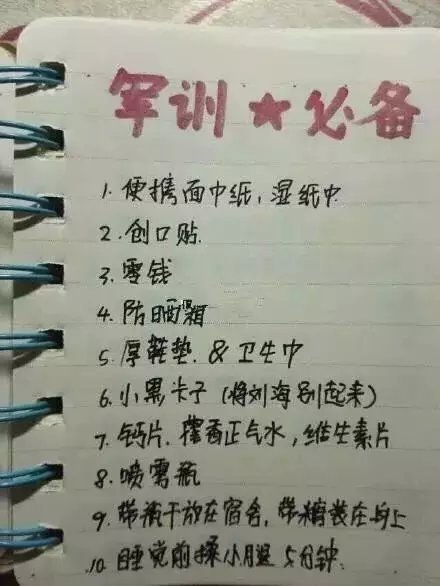 军训★必备
1. 便携面巾纸，湿纸巾
2. 创口贴
3. 零钱
4. 防晒霜
5. 厚鞋垫 & 卫生巾
6. 小黑卡子（将刘海别起来）
7. 钙片、藿香正气水，维生素片
8. 喷雾瓶
9. 带饼干放在宿舍，带糖装在身上
10. 睡觉前揉小腿5分钟